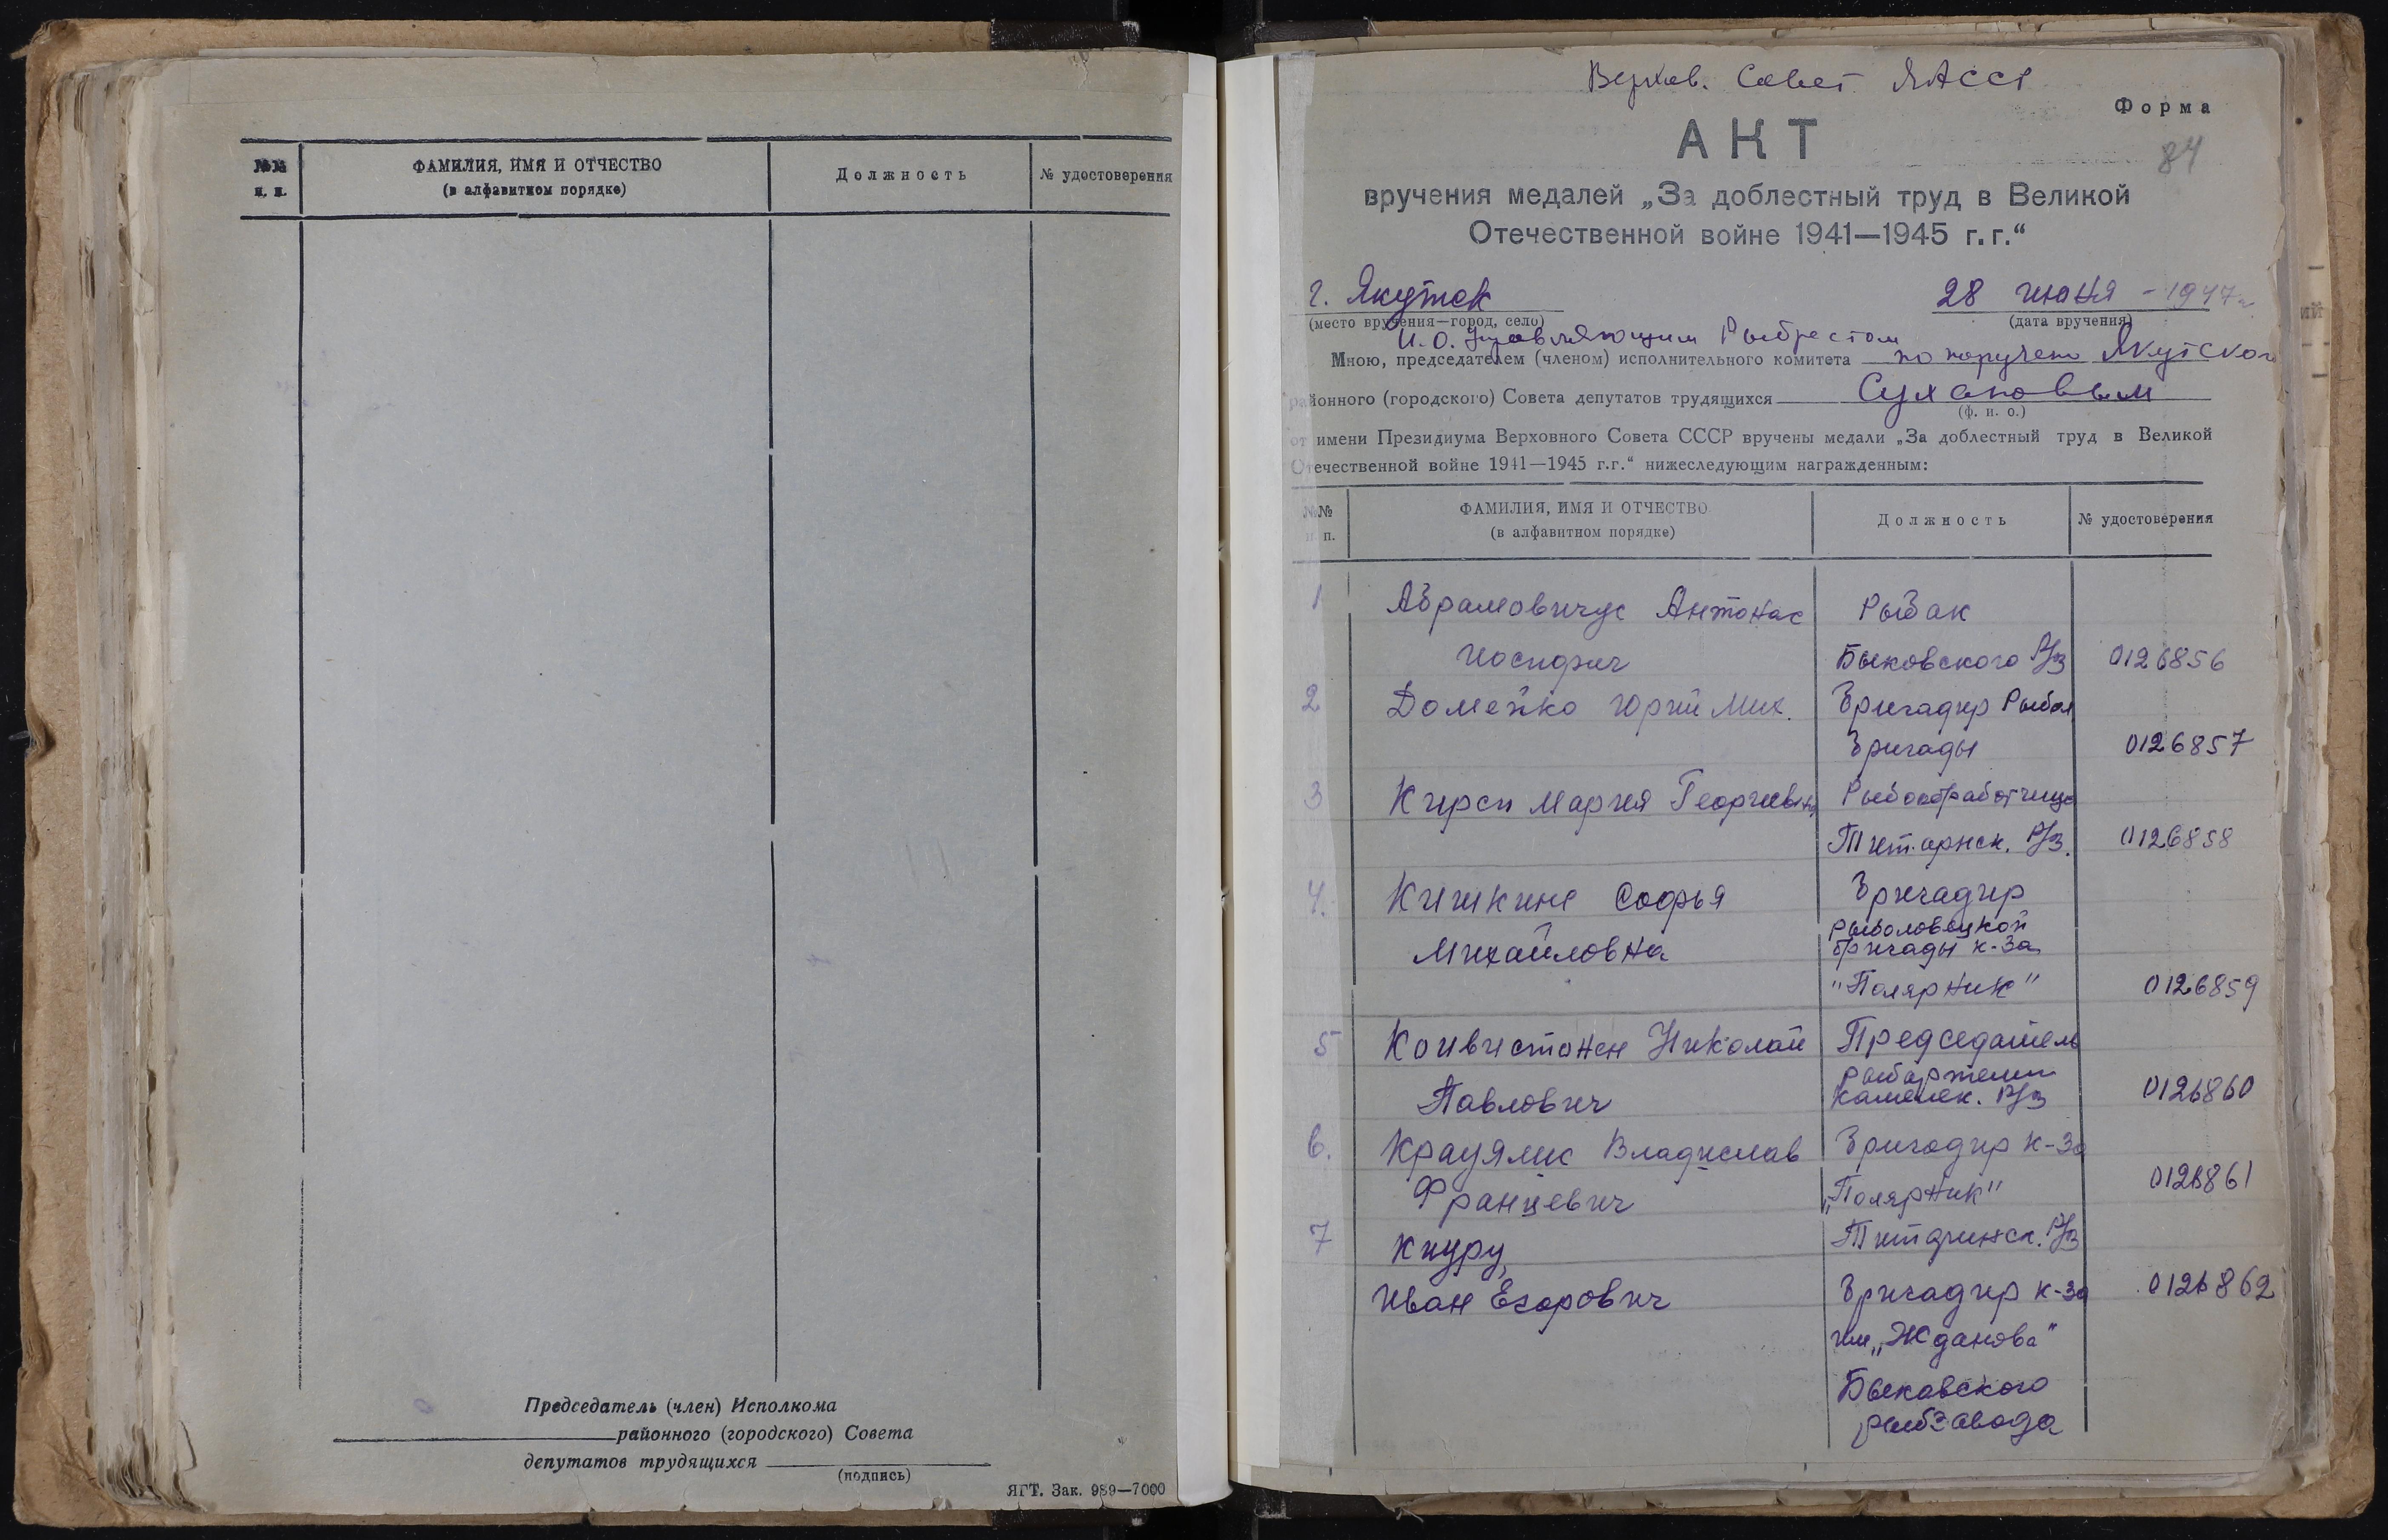 №№
п. п.
ФАМИЛИЯ, ИМЯ И ОТЧЕСТВО
(в алфавитном порядке)
Должность
№ удостоверения
Председатель (член) Исполкома
районного (городского) Совета
депутатов трудящихся
(подпись)
ЯГТ. Зак. 989—7000
Верхов. Совет ЯАССР
Форма
84
АКТ
вручения медалей „За доблестный труд в Великой
Отечественной войне 1941—1945 г.г.“
г. Якутск
28 июня - 1947 г
(место вручения—город, село)
(дата вручения)
И.О. Управляющим Рыбтрестом
Мною, председателем (членом) исполнительного комитета по поручен Якутского
районного (городского) Совета депутатов трудящихся Сухановым
(ф. и. о.)
от имени Президиума Верховного Совета СССР вручены медали „За доблестный труд в Великой
Отечественной войне 1941—1945 г.г.“ нижеследующим награжденным:
№№
п. п.
ФАМИЛИЯ, ИМЯ И ОТЧЕСТВО
(в алфавитном порядке)
Должность
№ удостоверения
1 Абрамовичус Антонас Рыбак
Иосифич Быковского Р/З 0126856
2 Домейко Юрий Мих. Бригадир Рыбол
Бригады 0126857
3 Кирси Мария Георгиевна Рыбообработчица
Титарнск. Р/З. 0126858
4. Кишкине Софья Бригадир
рыболовецкой
Михайловна бригады к-за
"Полярник" 0126859
5 Коивистонен Николай Председатель
рыбартели
Павлович Камелек. Р/З 0126860
6. Крауялис Владислав Бригадир к-за
Францевич „Полярник" 0126861
7 Киуру, Титаринск. Р/З
Иван Егорович Бригадир к-за 0126862
им „Жданова"
Быковского
рыбзавода